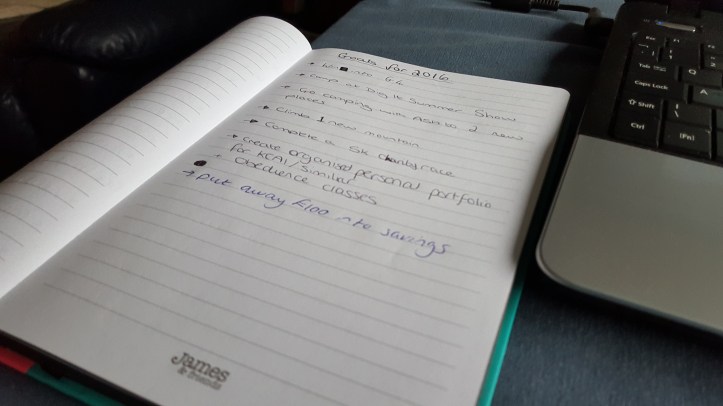 Goals for 2016
into G.4
Camp at Dog Summer Show
Go camping with 2 new
places
Climb 1 new mountain
Complete a 5k charity race
Create organised personal portfolio
for KCAI/Similar
Obedience classes
Put away £100 into savings
James
& friends
Tab
Caps Lock
Shift
Ctrl
[Fn]
Q
A
Z